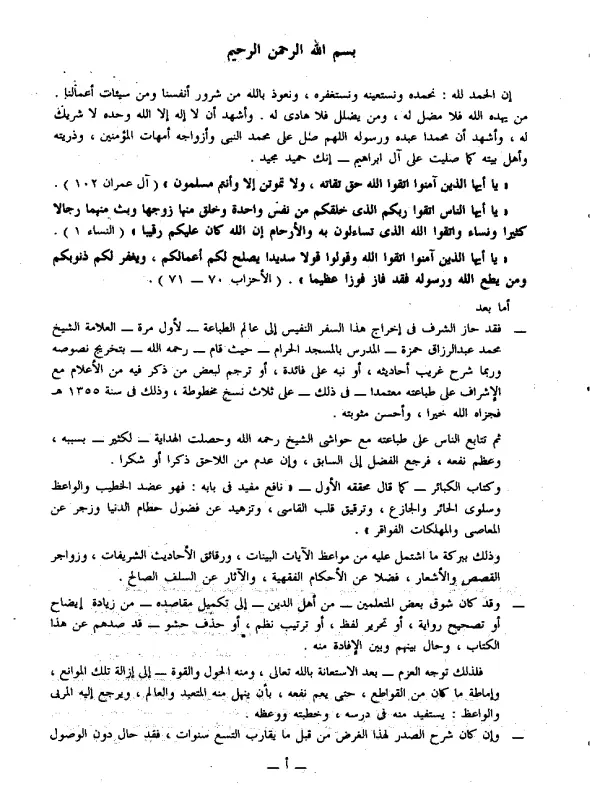 بسم الله الرحمن الرحيم
إن الحمد لله : نحمده ونستعينه ونستغفره ، ونعوذ بالله من شرور أنفسنا ومن سيئات أعمالنا .
من يهده الله فلا مضل له ، ومن يضلل فلا هادى له . وأشهد أن لا إله إلا الله وحده لا شريك
له ، وأشهد أن محمدا عبده ورسوله اللهم صل على محمد النبى وأزواجه أمهات المؤمنين ، وذريته
وأهل بيته كما صليت على آل ابراهيم — إنك حميد مجيد .
« يا أيها الذين آمنوا اتقوا الله حق تقاته ، ولا تموتن إلا وأنتم مسلمون » ( آل عمران ١٠٢ ) .
« يا أيها الناس اتقوا ربكم الذى خلقكم من نفس واحدة وخلق منها زوجها وبث منهما رجالا
كثيرا ونساء واتقوا الله الذى تساءلون به والأرحام إن الله كان عليكم رقيبا » ( النساء ١ ) .
« يا أيها الذين آمنوا اتقوا الله وقولوا قولا سديدا يصلح لكم أعمالكم ، ويغفر لكم ذنوبكم
ومن يطع الله ورسوله فقد فاز فوزا عظيما » . ( الأحزاب ٧٠ — ٧١ ) .
أما بعد
— فقد حاز الشرف فى إخراج هذا السفر النفيس إلى عالم الطباعة — لأول مرة — العلامة الشيخ
محمد عبدالرزاق حمزة — المدرس بالمسجد الحرام — حيث قام — رحمه الله — بتخريج نصوصه
وربما شرح غريب أحاديثه ، أو نبه على فائدة ، أو ترجم لبعض من ذكر فيه من الأعلام مع
الإشراف على طباعته معتمدا — فى ذلك — على ثلاث نسخ مخطوطة ، وذلك فى سنة ١٣٥٥ هـ
فجزاه الله خيرا ، وأحسن مثوبته .
ثم تتابع الناس على طباعته مع حواشى الشيخ رحمه الله وحصلت الهداية — لكثير — بسببه ،
وعظم نفعه ، فرجع الفضل إلى السابق ، وإن عدم من اللاحق ذكرا أو شكرا .
وكتاب الكبائر — كما قال محققه الأول — « نافع مفيد فى بابه : فهو عضد الخطيب والواعظ
وسلوى الحائر والجازع ، وترقيق قلب القاسى ، وتزهيد عن فضول حطام الدنيا وزجر عن
المعاصى والمهلكات الفواقر » .
وذلك ببركة ما اشتمل عليه من مواعظ الآيات البينات ، ورقائق الأحاديث الشريفات ، وزواجر
القصص والأشعار ، فضلا عن الأحكام الفقهية ، والآثار عن السلف الصالح .
— وقد كان شوق بعض المتعلمين — من أهل الدين — إلى تكميل مقاصده — من زيادة إيضاح
أو تصحيح رواية ، أو تحرير لفظ ، أو ترتيب نظم ، أو حذف حشو — قد صدهم عن هذا
الكتاب ، وحال بينهم وبين الإفادة منه .
فلذلك توجه العزم — بعد الاستعانة بالله تعالى ، ومنه الحول والقوة — إلى إزالة تلك الموانع ،
وإماطة ما كان من القواطع ، حتى يعم نفعه ، بأن ينهل منه المتعبد والعالم ، ويرجع إليه المربى
والواعظ : يستفيد منه فى درسه ، وخطبته ووعظه .
— وإن كان شرح الصدر لهذا الغرض من قبل ما يقارب التسع سنوات ، فقد حال دون الوصول
— أ —